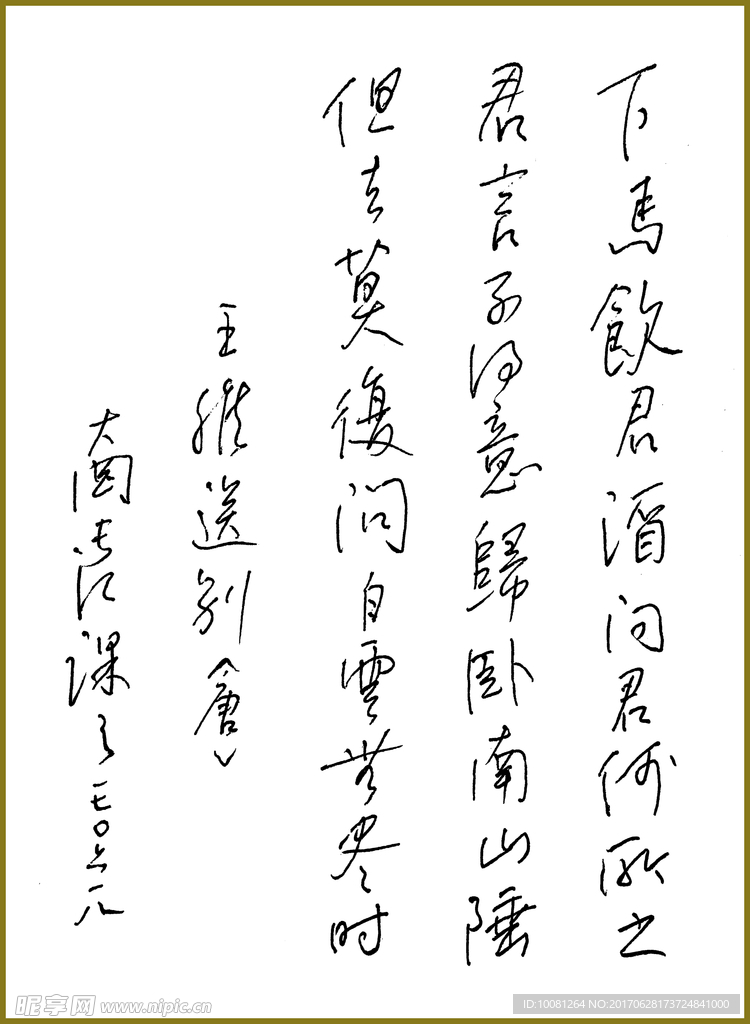 下馬飲君酒问君何所之
君言不得意歸卧南山陲
但去莫復问白雲無尽时
王維送别〈唐〉
课之一七〇六一八
昵享网 www.nipic.cn
ID:10081264 NO:20170628173724841000